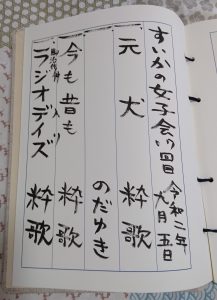 すいかの女子会17回目
令和二年
月五日
元犬　粋歌
のだゆき
今も昔も　粋歌
入り
ラジオデイズ　粋歌